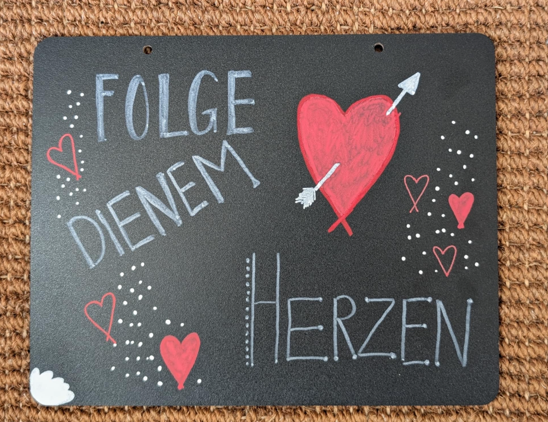 FOLGE
DIENEM
HERZEN